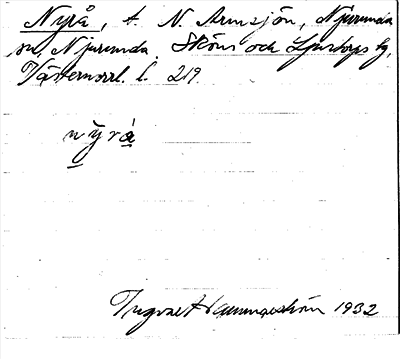 Nyrå, t. N. Armsjön, Njurunda
sn, Njurunda, Sköns och Ljustorps tg,
Västernorrl. l. 219.
nyrå
Ingvar Hammarström 1932